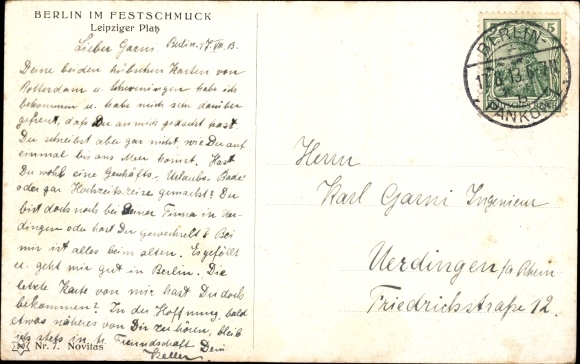 BERLIN IM FESTSCHMUCK
Leipziger Platz
Lieber Garni. Berlin, 17. VII. 13.
Deine beiden hübschen Karten von
Rotterdam u. Scheveningen habe ich
bekommen u. habe mich sehr darüber
gefreut, daß Du an mich gedacht hast.
Du schreibst aber gar nicht, wie Du auf
einmal bis ans Meer kommst. Hast
Du wohl eine Geschäfts-, Urlaubs- Bade-
oder gar Hochzeitsreise gemacht? Du
bist doch noch bei Deiner Firma in Uer-
dingen oder hast Du gewechselt? Bei
mir ist alles beim alten. Es gefällt
u. geht mir gut in Berlin. Die
letzte Karte von mir hast Du doch
bekommen? In der Hoffnung, bald
etwas näheres von Dir zu hören, bleib
ich stets in Freundschaft Dein
Nr. 7. Novitas
BERLIN-
PANKOW
5
DEUTSCHES REICH
Herrn
Karl Garni Ingenieur
Uerdingen, a Rhein
Friedrichstraße 12.